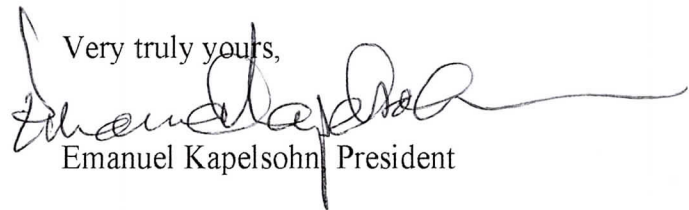 Very truly yours,
Emanuel Kapelsohn
Emanuel Kapelsohn, President